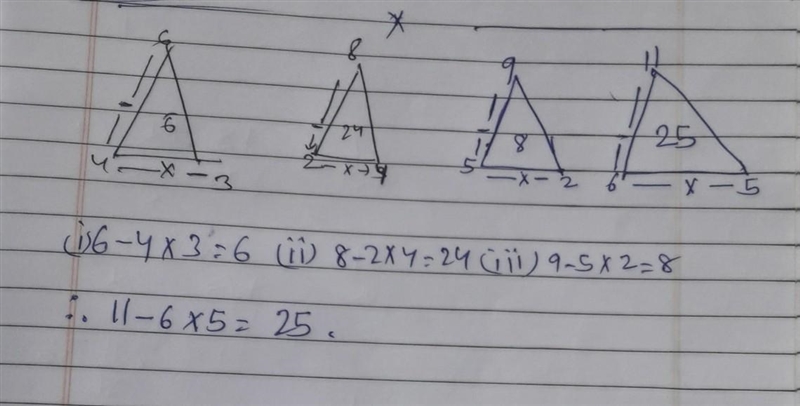 x
6 8 9 11
6 24 8 25
4 — x — 3 2 — x → 4 5 — x — 2 6 — x — 5
(i) 6 - 4 x 3 = 6 (ii) 8 - 2 x 4 = 24 (iii) 9 - 5 x 2 = 8
∴ 11 - 6 x 5 = 25.